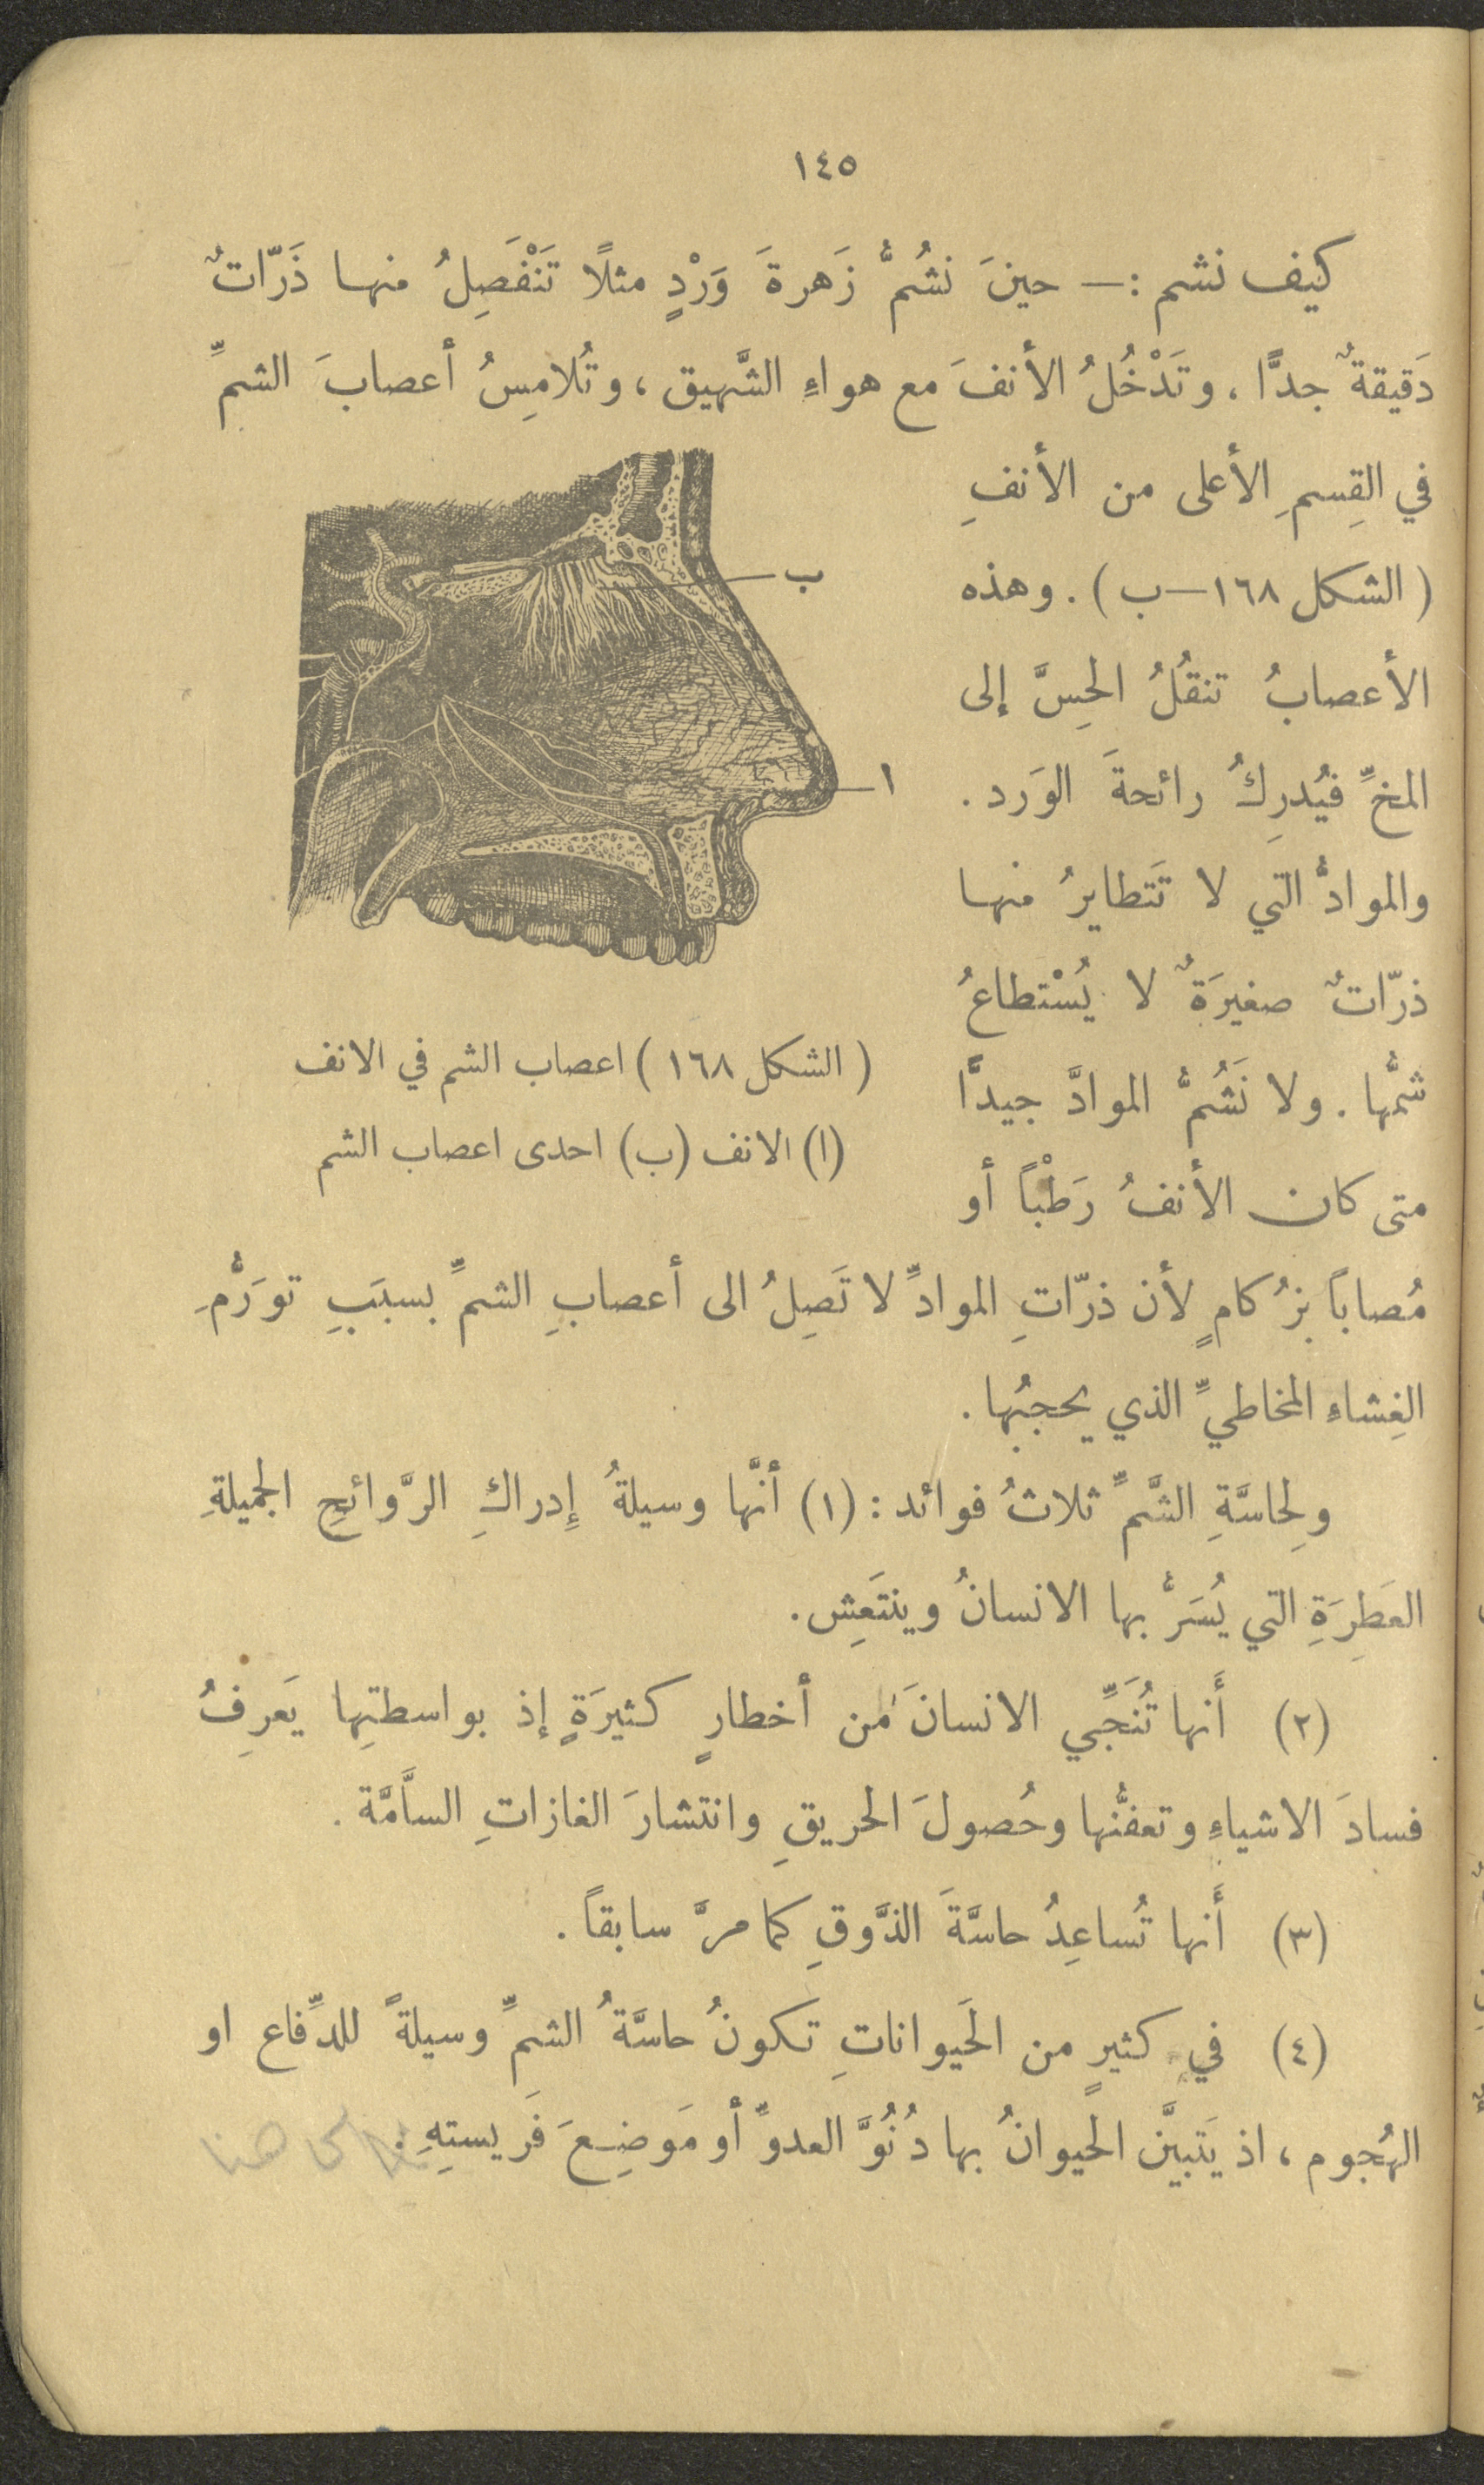 ١٤٥
كيف نشم :— حينَ نشُمُّ زَهرةَ وَرْدٍ مثلًا تَنْفَصِلُ منها ذَرّاتٌ
دَقيقةٌ جدًّا ، وتَدْخُلُ الأنفَ مع هواءِ الشَّهيق ، وتُلامِسُ أعصابَ الشمِّ
في القِسمِ الأعلى من الأنفِ
( الشكل ١٦٨—ب ) . وهذه
الأعصابُ تنقُلُ الحِسَّ إلى
المخِّ فيُدرِكُ رائحةَ الوَرد .
والموادُّ التي لا تَتطايرُ منها
ذرّاتٌ صغيرَةٌ لا يُسْتطاعُ
شمُّها . ولا نَشُمُّ الموادَّ جيدًّا
متى كان الأنفُ رَطْبًا أو
ب
ا
( الشكل ١٦٨ ) اعصاب الشم في الانف
(ا) الانف (ب) احدى اعصاب الشم
مُصاباً بزُكامٍ لأن ذرّاتِ الموادِّ لا تَصِلُ الى أعصابِ الشمِّ بسبَبِ تورَّمِ
الغِشاءِ المخاطيِّ الذي يحجبُها .
ولِحاسَّةِ الشَّمِّ ثلاثُ فوائد : (١) أنَّها وسيلةُ إِدراكِ الرَّوائحِ الجميلةِ
العَطِرَةِ التي يُسَرُّ بها الانسانُ وينتَعِش .
(٢) أَنها تُنَجِّي الانسانَ من أخطارٍ كثيرَةٍ إذ بواسطتِها يَعرِفُ
فسادَ الاشياءِ وتعفنُّها وحُصولَ الحريقِ وانتشارَ الغازاتِ السامَّة .
(٣) أَنها تُساعِدُ حاسَّةَ الذَّوقِ كما مرَّ سابقاً .
(٤) في كثيرٍ من الحَيواناتِ تكونُ حاسَّةُ الشمِّ وسيلةً للدِّفاع او
الهُجوم ، اذ يَتبيَّن الحيوانُ بها دُنُوَّ العدوِّ أو مَوضِعَ فَريستِهِ . الى هنا